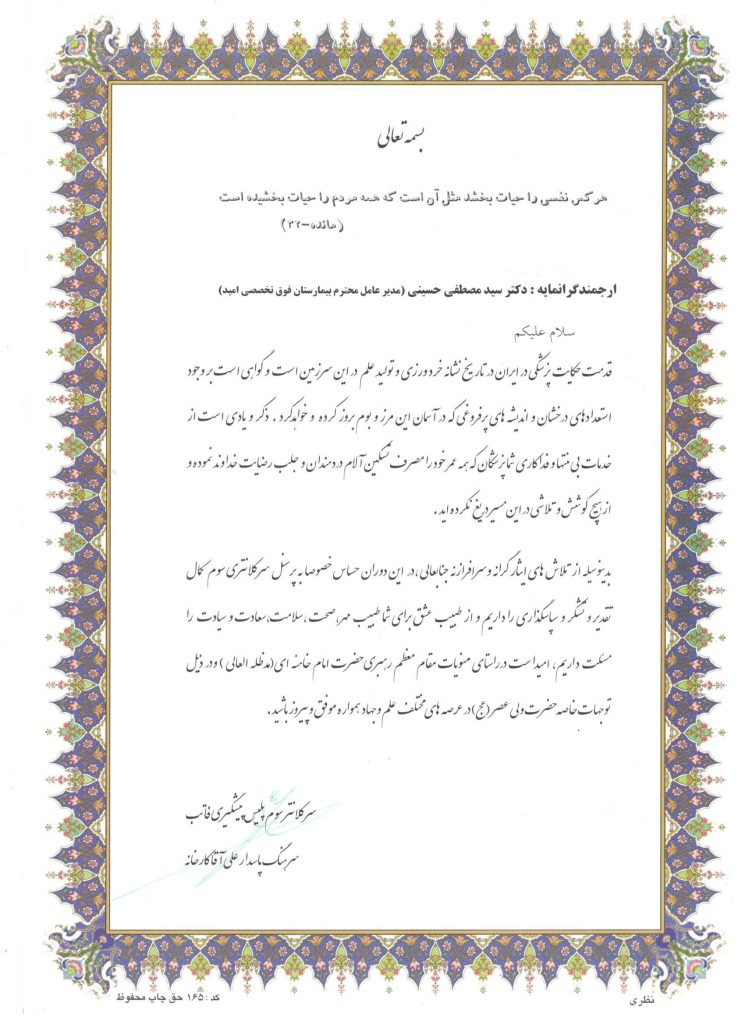 بسمه تعالی
هر کس نفسی را حیات بخشد مثل آن است که همه مردم را حیات بخشیده است
(مائده-۳۲)
ارجمندگرانمایه : دکتر سید مصطفی حسینی (مدیر عامل محترم بیمارستان فوق تخصصی امید)
سلام علیکم
قدمت حکایت پزشکی در ایران در تاریخ نشانه خردورزی و تولید علم در این سرزمین است و گواهی است بر وجود
استعدادهای درخشان و اندیشه های پرفروغی که در آسمان این مرز و بوم بروز کرده و خواهد کرد . ذکر و یادی است از
خدمات بی منتها و فداکاری شما پزشکان که همه عمر خود را مصرف تسکین آلام دردمندان و جلب رضایت خداوند نموده و
از هیچ کوشش و تلاشی در این مسیر دریغ نکرده اید .
بدینوسیله از تلاش های ایثارگرانه و سرافرازنه جنابعالی ،در این دوران حساس خصوصا به پرسنل سرکلانتری سوم کمال
تقدیر و تشکر و سپاسگذاری را داریم و از طبیب عشق برای شما طبیب مهر، صحت ، سلامت، سعادت و سیادت را
مسئلت داریم ، امید است در راستای منویات مقام معظم رهبری حضرت امام خامنه ای(مدظله العالی ) و در ذیل
توجهات خاصه حضرت ولی عصر (عج) در عرصه های مختلف علم و جهاد همواره موفق و پیروز باشید .
سرکلانتر سوم پلیس پیشگیری فاتب
سرهنگ پاسدار علی آقا کارخانه
کد : ۱۶۵ حق چاپ محفوظ
نظری